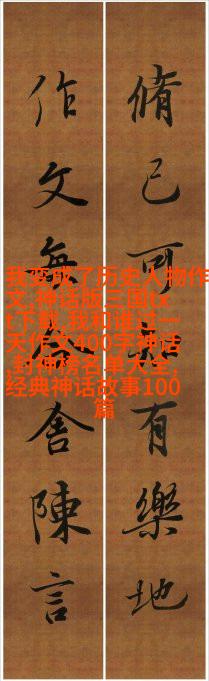 脩己可有樂地
作文無舍陳言
我变成了历史人物作
文,神话版三国tx
t下载,我和谁过一
天作文400字神话
,封神榜名单大全,
经典神话故事100
篇